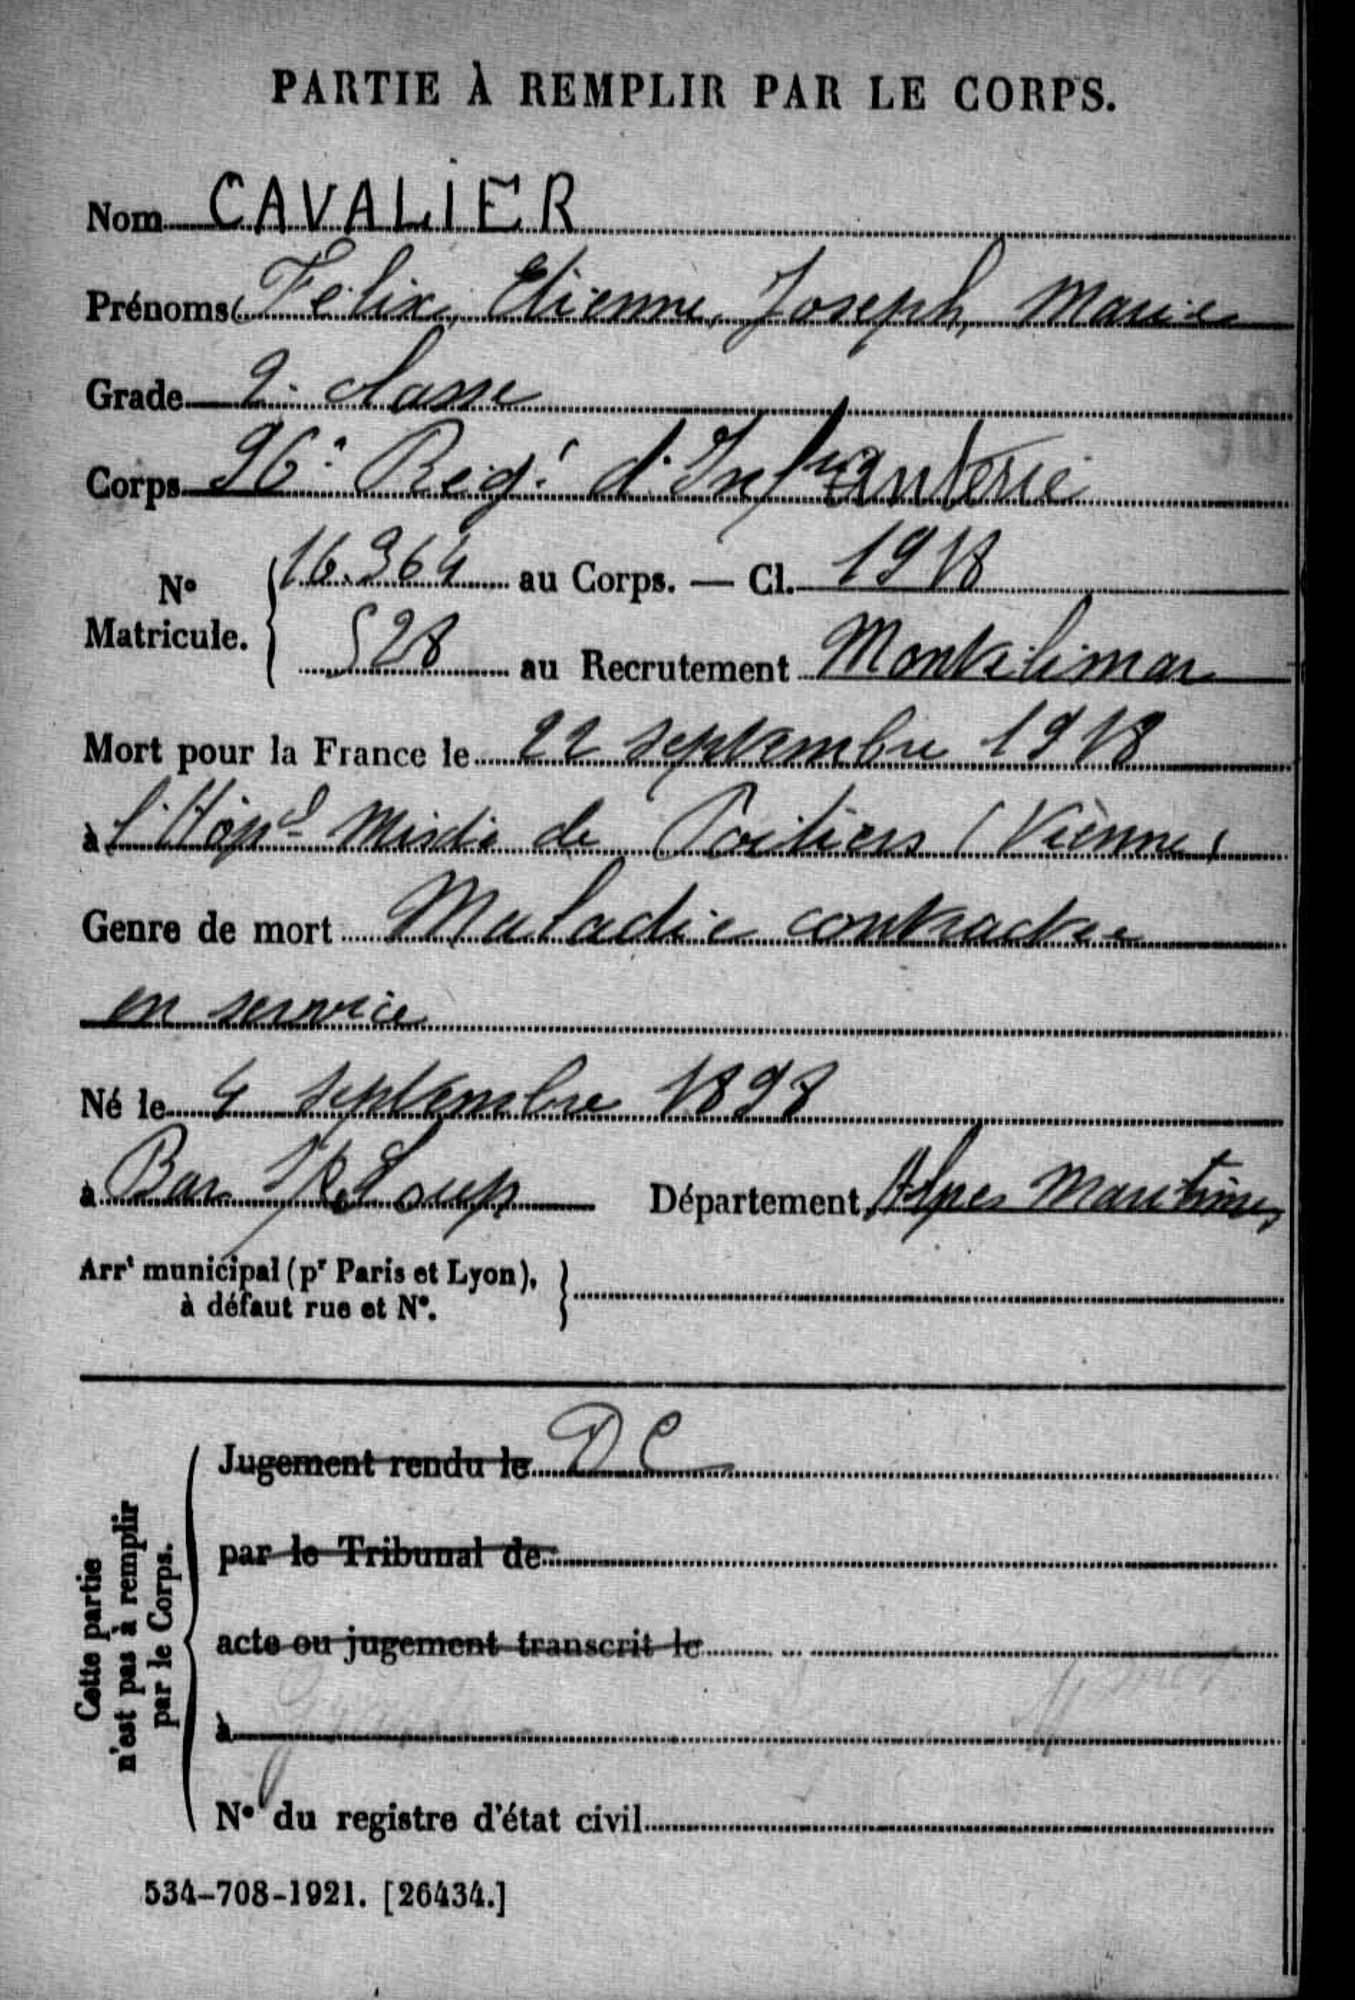 PARTIE À REMPLIR PAR LE CORPS.
Nom CAVALIER
Prénoms Félix, Etienne, Joseph, Marie
Grade 2e classe
Corps 96e Régt d'Infanterie
No Matricule. 16.364 au Corps. — Cl. 1918
528 au Recrutement Montélimar
Mort pour la France le 22 septembre 1918
à l'Hôpal Mixte de Poitiers (Vienne)
Genre de mort Maladie contractée
en service
Né le 4 septembre 1898
à Bar s/ Loup Département Alpes Maritimes
Arrt municipal (pr Paris et Lyon),
à défaut rue et No.
Cette partie
n'est pas à remplir
par le Corps.
Jugement rendu le DC
par le Tribunal de
acte ou jugement transcrit le
à
No du registre d'état civil
534-708-1921. [26434.]